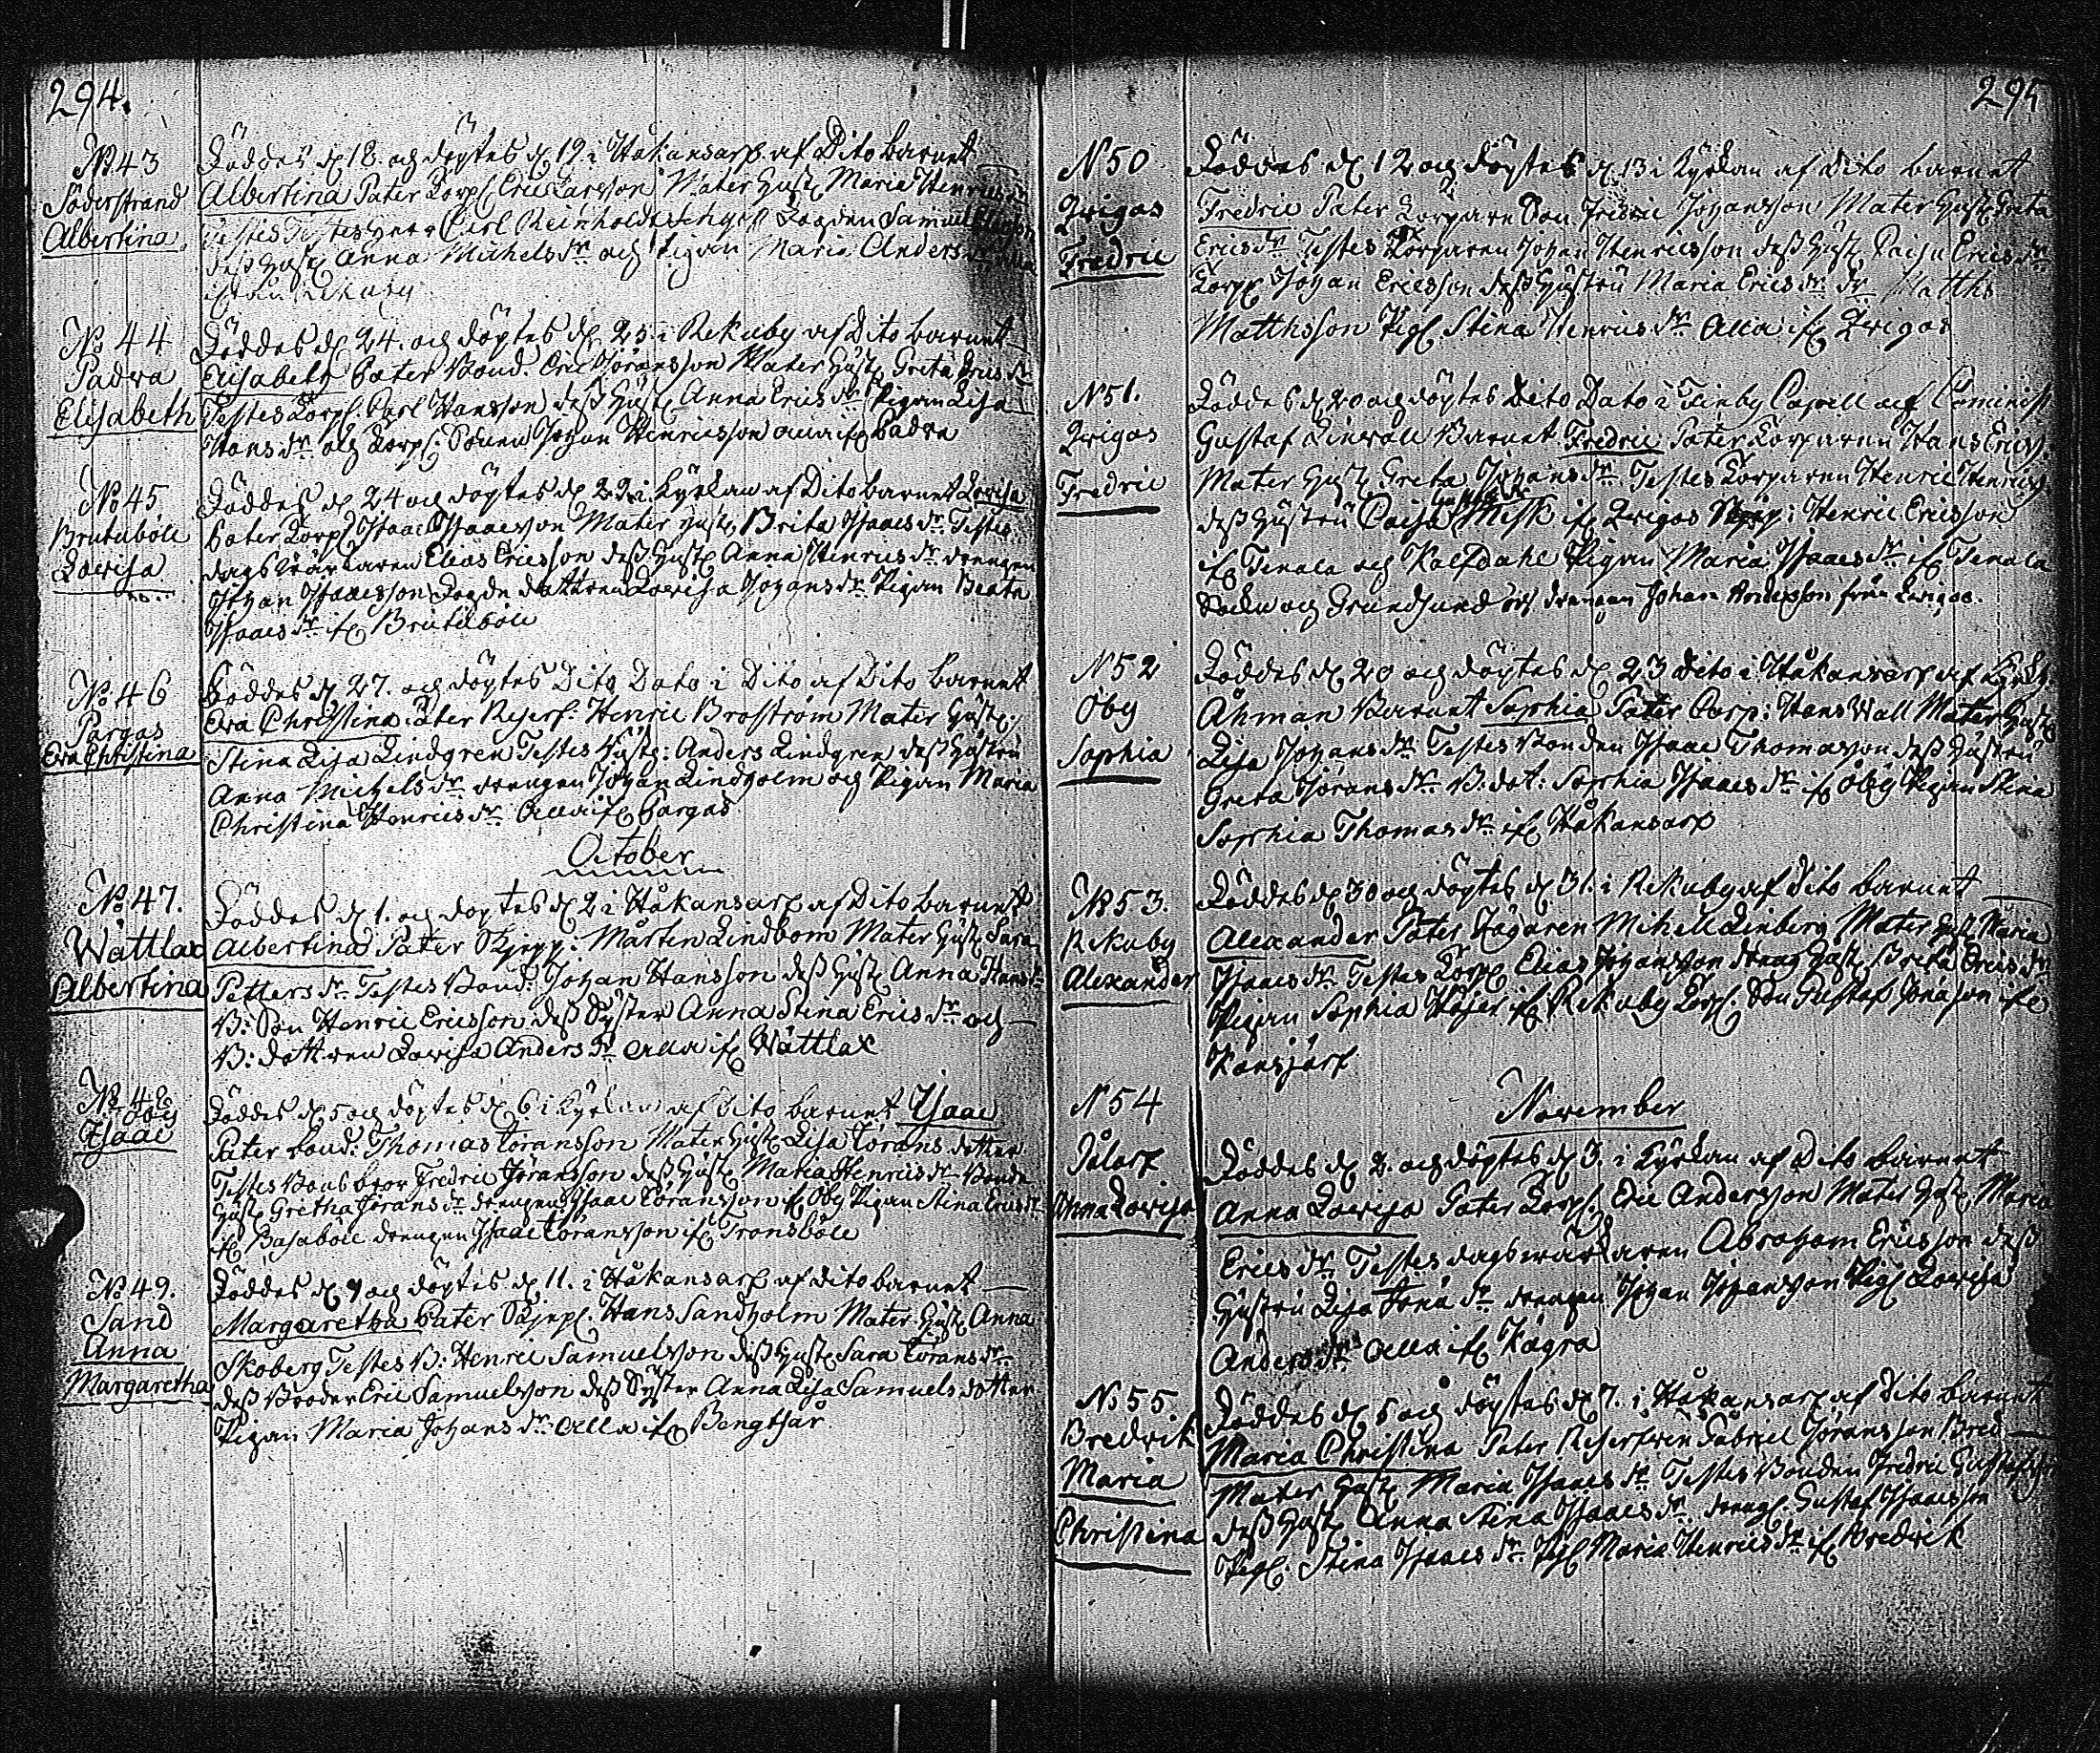 294.
No 43
Söderstrand
Albertina
Föddes d 18. och döptes d 19. i Håkansarf af Dito barnet
Albertina Pater Torp Eric Larsson Mater Hust Maria Henricsdr
Testes Carl Reinhold Samuel
dess Hust Anna Michelsdr och Pigan Maria Andersdr alla
ifrån Rekuby
No 44
Padva
Elisabeth
Föddes d 24. och döptes d 25. i Rekuby af Dito barnet
Elisabeth Pater Bond. Eric Göransson Mater Hust Greta Ericsdr
Testes Torp. Carl Hansson dess Hust Anna Ericsdr Pigan Lisa
Hansdr och Torp. Sonen Johan Henricsson alla if Padva
No 45
Brutuböle
Lovisa
Föddes d 24 och döptes d 29 i Kyrkan af Dito barnet Lovisa
Pater Torp Isaac Isaacsson Mater Hust. Brita Isaacsdr Testes
dagsverkaren Elias Ericsson dess Hust Anna Henricsdr drengen
Johan Isaacsson dottren Lovisa Johansdr Pigan Beata
Isaacsdr if Brutuböle
No 46
Pargas
Eva Christina
Föddes d 27. och döptes Dito Dato i Dito af Dito barnet
Eva Christina Pater Henric Broström Mater Hust.
Stina Lisa Lindgren Testes Anders Lindgren dess Hustru
Anna Michelsdr drengen Johan Lindholm och Pigan Maria
Christina Henricsdr Alla if Pargas
October
No 47.
Wättlax
Albertina
Föddes d 1. och döptes d 2 i Håkansarf af Dito barnet
Albertina Pater Skepp: Mårten Lindbom Mater Hust Sara
Pettersdr Testes Bond. Johan Hansson dess Hust Anna Hansdr
B: Son Henric Ericsson dess Syster Anna Stina Ericsdr och
B: dottren Lovisa Andersdr Alla if Wättlax
No 48
Öby
Isaac
Föddes d 5 och döptes d 6 i Kyrkan af Dito barnet Isaac
Pater Bond. Thomas Göransson Mater Hust Lisa Görans dotter
Testes Fredric Göransson dess Hust Maria Henricsdr Bonde
Hust Gretha Göransdr drengen Isaac Göransson if Öby Pigan Stina Ericsdr
if Basaböle drengen Isaac Göransson if Fransböle
No 49.
Sand
Anna
Margaretha
Föddes d 9 och döptes d 11. i Håkansarf af Dito barnet
Margaretha Pater Hans Sandholm Mater Hust. Anna
Skoberg Testes B: Henric Samuelsson dess Hust Sara Göransdr
dess Broder Eric Samuelsson dess Syster Anna Lisa Samuels dotter
Pigan Maria Johansdr Alla if Bengtsår.
295
N 50
Zvigos
Fredric
Föddes d 12 och döptes d 13 i Kyrkan af Dito barnet
Fredric Pater Torparn Son Fredric Johansson Mater Hust Greta
Ericsdr Testes Torparen Johan Henricsson dess Hust Ericsdr
Torp Johan Ericsson dess Hustru Maria Ericsdr Matths
Matthsson Pig. Stina Henricsdr Alla if Zvigos
N 51.
Zvigos
Fredric
Föddes d 20 och döptes Dito Dato i Finby Capell af Cominist
Gustaf Barnet Fredric Pater Torparen Hans Erics
Mater Hust Greta Johansdr Testes Torparen Henric Henrics
dess Hustru Caisa if Zvigos Henric Ericsson
if Tenala och Kalfdahl Pigan Maria Isaacsdr if Tenala
Sockn och Grundsund och drengen Johan Andersson från Zvigos.
N 52
Öby
Sophia
Föddes d 20 och döptes d 23 dito i Håkansarf af
Åhman Barnet Sophia Pater Corp: Hans Wall Mater Hust
Lisa Johansdr Testes Bonden Isaac Thomasson dess Hustru
Greta Göransdr B. dot: Sophia Isaacsdr if Öby Pigan Stina
Sophia Thomasdr if Håkansarf
No 53.
Rekuby
Alexander
Föddes d 30 och döptes d 31. i Rekuby af Dito barnet
Alexander Pater Michell Linberg Mater Hust Maria
Isaacsdr Testes Torp Elias Johansson Hust Brita Ericsdr
Pigan Sophia if Rekuby Torp. Son Gustaf Jonasson if
N 54
Anna Lovisa
November
Föddes d 2. och döptes d 3. i Kyrkan af Dito barnet
Anna Lovisa Pater Torp. Eric Andersson Mater Hust Maria
Ericsdr Testes dagsverkaren Abraham Ericsson dess
Hustru Lisa drengen Johan Johansson Pig Lovisa
Andersdr Alla if Kagra
No 55
Bredvik
Maria
Christina
Föddes d 5 och döptes d 7. i Håkansarf af Dito barnet
Maria Christina Pater Gabriel Göransson Bred
Mater Hust Maria Isaacsdr Testes Bonden Fredric
dess Hust Anna Stina Isaacsdr dreng Gustaf Isaacsson
Pig. Stina Isaacsdr Pig Maria Henricsdr if Bredvik